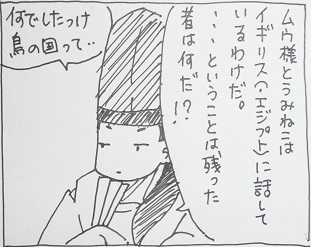 ムウ様とうみねこは
イギリス(・エジプト)に話して
いるわけだ。
・・ということは、残った
者は何だ!?
何でしたっけ
鳥の国って・・